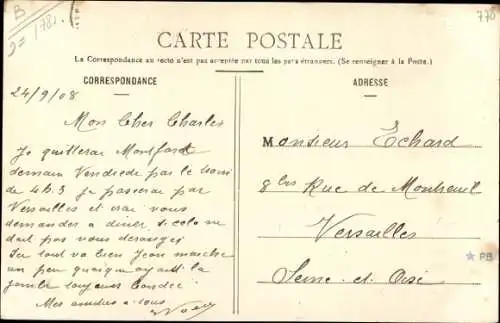 B
1781
778
CARTE POSTALE
La Correspondance au recto n'est pas acceptée par tous les pays étrangers. (Se renseigner à la Poste.)
CORRESPONDANCE
ADRESSE
24/9/08
Mon Cher Charles
Je quitterai Montfort
demain Vendredi par le train
de 4h.3 je passerai par
Versailles et irai vous
demander à diner si cela ne
doit pas vous déranger
Tu tout va bien Jean marche
un peu quoique ayant la
jambe toujours bandée
Mes amitiés à tous
Monsieur Echard
8 bis Rue de Montreuil
Versailles
Seine-et-Oise
PB